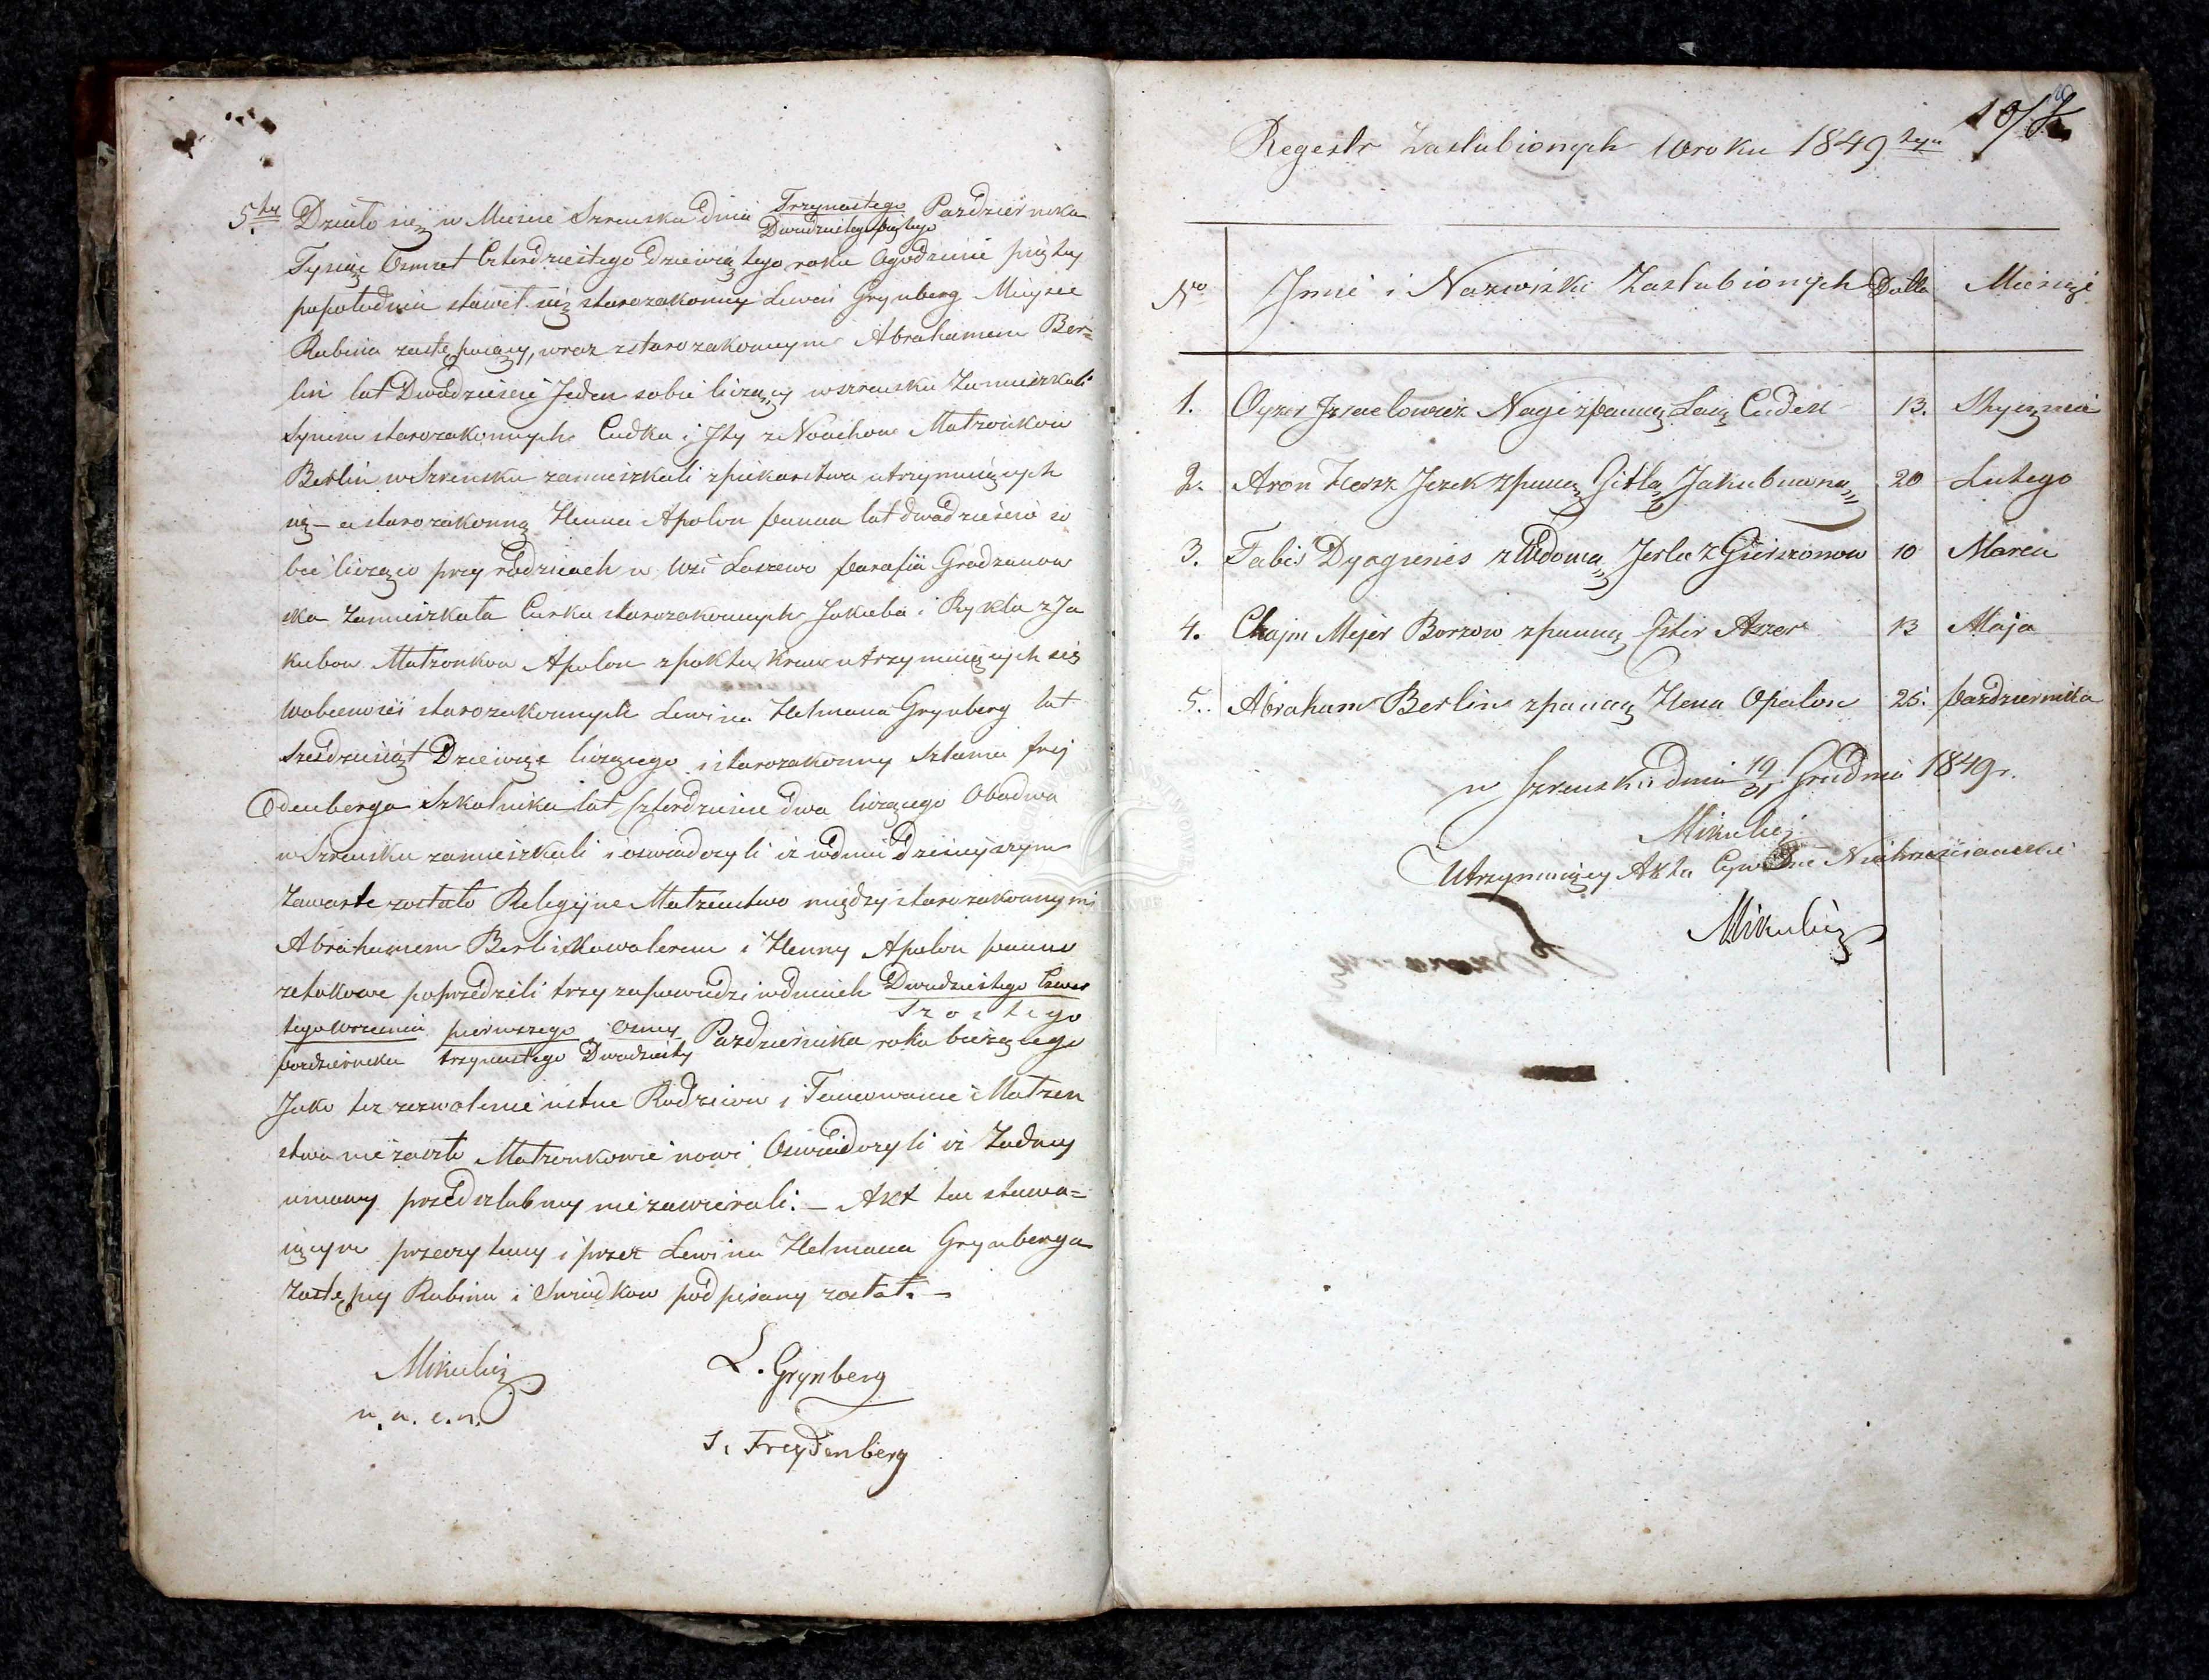 5ty Działo się w Mieście Szrensku dnia Trzynastego Pazdziernika
Dwudziestego piątego
Tysiąc Osmset Czterdziestego dziewiątego roku Ogodzinie piątey
popołudniu stawił się starozakonny Lewin Grynberg Miejsce
Rabina zastępuiący, wraz z starozakonnym Abrahamem Ber=
lin lat Dwadzieścia Jeden sobie liczący w szrensku Zamieszkali
Synem starozakonnych Cudka i Ity z Noachow Małżonkow
Berlin w Szrensku zamieszkali z piekarstwa utrzymuiących
się – a starozakonną Henna Apolon panna lat dwadzieścia so
bie licząca przy rodzicach w wsi Łaszewo parafii Gradzanow
ska Zamieszkała Curka starozakonnych Jakuba i Rykla z Ja
kubow Małzonkow Apolon z paktu krow utrzymuiących się
wobecności starozakonnych Lewina Helmana Grynberg lat
Sześdziesiąt Dziewięc liczącego i starozakonny Szlama frej
Odenberga Szkolnika lat Czterdzieście dwa liczącego Obadwa
w Szrensku zamieszkali i oswiadczyli iz wdniu Dzisieyszym
Zawarte zostało Religijne Małzenstwo między starozakonnymi
Abrahamem Berlin Kawalerem i Henny Apolon panno
zetakowe poprzedzili trzy zapowiedzi wdniach Dwudziestego Czwar
Szostego
tego Wrzesnia pierwszego i osmy Pazdziernika roku bieżącego
pazdziernika trzynastego Dwudziesty
Jako tez zezwolenie ustne Rodziców i Tamowanie Małzen
stwa nie zaszło Małzonkowie nowi Oswiadczyli iż Zadney
umowy przedszlubney nie zawierali: – Akt ten stawa=
iącym przeczytany i przez Lewina Helmana Grynberga
Zastępcy Rabina i Swiadkow podpisany został. –
Mikulicz
L. Grynberg
S. Freydenberg
Regestr Zaslubionych w roku 1849 tego
No Imie i Nazwiska Zaslubionych Datta Miesiąc
1. Oyzer Izraelowicz Nagi z panną Laią Cudek 13. Stycznia
2. Aron Hersz Jezek z panną Gitla Jakubuwna 20 Lutego
3. Tabis Dyagienes z Wdową Jerla z Gierszonow 10 Marca
4. Chajm Mejer Borzow z panną Ester Aszer 13 Maja
5. Abraham Berlin z panną Hena Opalon 25. pazdziernika
w Szrensku dnia 19/31 Grudnia 1849 r.
Mikulicz
Utrzymuiący Akta Cywilne Niechrzesciańskie
Mikulicz